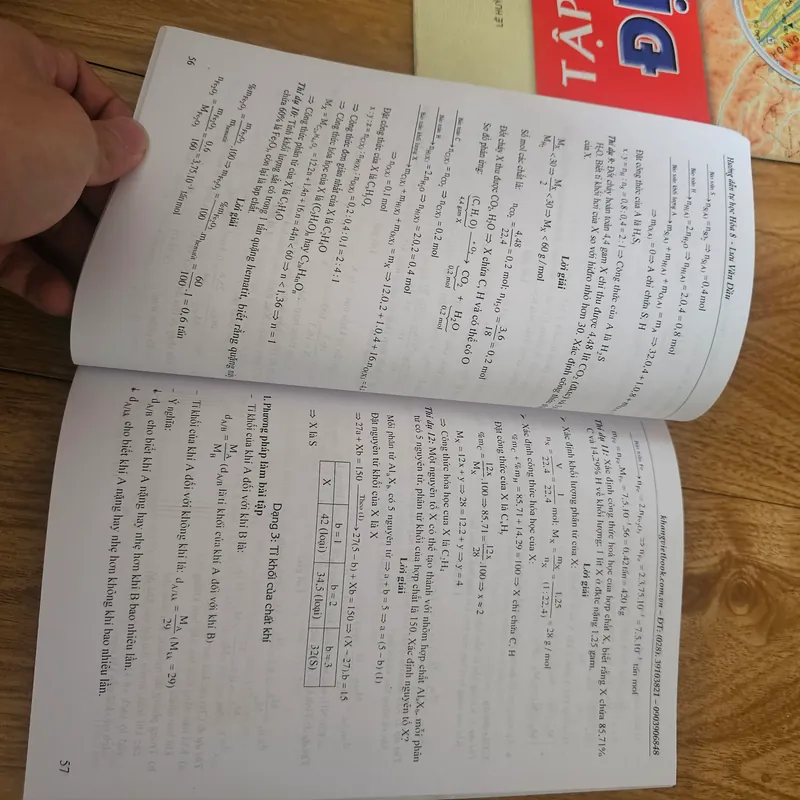 Hướng dẫn tự học Hóa 8 - Lưu Văn Dầu
Bảo toàn S → n_S(A) = n_SO₂ ⇒ n_S(A) = 0,4 mol
Bảo toàn H → n_H(A) = 2.n_H₂O ⇒ n_H(A) = 2.0,4 = 0,8 mol
Bảo toàn khối lượng A → m_S(A) + m_H(A) + m_O(A) = m_A ⇒ 32.0,4 + 1.0,8 +
⇒ n_O(A) = 0 ⇒ A chỉ chứa S, H
Đặt công thức của A là HₓSᵧ
x : y = n_H : n_S = 0,8 : 0,4 = 2 : 1 ⇒ Công thức của A là H₂S
Thí dụ 9: Đốt cháy hoàn toàn 4,4 gam X chỉ thu được 4,48 lít CO₂ (đktc) và
H₂O. Biết tỉ khối hơi của X so với hiđro nhỏ hơn 30. Xác định công thức
của X.
Lời giải
M_X / M_H₂ < 30 ⇒ M_X / 2 < 30 ⇒ M_X < 60 g / mol
Số mol các chất là:
n_CO₂ = 4,48 / 22,4 = 0,2 mol; n_H₂O = 3,6 / 18 = 0,2 mol
Đốt cháy X thu được CO₂, H₂O ⇒ X chứa C, H và có thể có O
Sơ đồ phản ứng:
(C, H, O) 4,4 gam X + O₂ → CO₂ 0,2 mol + H₂O 0,2 mol
Bảo toàn C → n_C(X) = n_CO₂ ⇒ n_C(X) = 0,2 mol
Bảo toàn H → n_H(X) = 2.n_H₂O ⇒ n_H(X) = 2.0,2 = 0,4 mol
Bảo toàn khối lượng X → m_C(X) + m_H(X) + m_O(X) = m_X ⇒ 12.0,2 + 1.0,4 + 16.n_O(X) =
⇒ n_O(X) = 0,1 mol
Đặt công thức của X là CₓHᵧO_z
x : y : z = n_C(X) : n_H(X) : n_O(X) = 0,2 : 0,4 : 0,1 = 2 : 4 : 1
⇒ Công thức đơn giản nhất của X là C₂H₄O
⇒ Công thức hóa học của X là (C₂H₄O)ₙ hay C₂ₙH₄ₙOₙ
M_X = M_C₂ₙH₄ₙOₙ = 12.2n + 1.4n + 16.n = 44n < 60 ⇒ n < 1,36 ⇒ n = 1
⇒ Công thức phân tử của X là C₂H₄O
Thí dụ 10: Tính khối lượng sắt có trong 1 tấn quặng hematit, biết rằng quặng này
chứa 60% là Fe₂O₃ còn lại là tạp chất.
Lời giải
%m_Fe₂O₃ = m_Fe₂O₃ / m_hematit .100 ⇒ m_Fe₂O₃ = %m_Fe₂O₃ / 100 .m_hematit = 60 / 100 .1 = 0,6 tấn
n_Fe₂O₃ = m_Fe₂O₃ / M_Fe₂O₃ = 0,6 / 160 = 3,75.10⁻³ tấn mol
56
khangvietbook.com.vn – ĐT: (028). 39103821 – 0903906848
Bảo toàn Fe → n_Fe = 2.n_Fe₂O₃ ⇒ n_Fe = 2.3,75.10⁻³ = 7,5.10⁻³ tấn mol
m_Fe = n_Fe.M_Fe = 7,5.10⁻³.56 = 0,42 tấn = 420 kg
Thí dụ 11: Xác định công thức hoá học của hợp chất X, biết rằng X chứa 85,71%
C và 14,29% H về khối lượng; 1 lít X ở đktc nặng 1,25 gam.
Lời giải
➢ Xác định khối lượng phân tử của X:
n_X = V / 22,4 = 1 / 22,4 mol; M_X = m_X / n_X = 1,25 / (1 : 22,4) = 28 g / mol
➢ Xác định công thức hóa học của X:
%m_C + %m_H = 85,71 + 14,29 = 100 ⇒ X chỉ chứa C, H
Đặt công thức của X là CₓHᵧ
%m_C = 12x / M_X .100 ⇒ 85,71 = 12x / 28 .100 ⇒ x ≈ 2
M_X = 12x + y ⇒ 28 = 12.2 + y ⇒ y = 4
⇒ Công thức hóa học của X là C₂H₄
Thí dụ 12: Một nguyên tố X có thể tạo thành với nhôm hợp chất AlₐX_b, mỗi phân
tử có 5 nguyên tử, phân tử khối của hợp chất là 150. Xác định nguyên tố X?
Lời giải
Mỗi phân tử AlₐX_b có 5 nguyên tử ⇒ a + b = 5 ⇒ a = (5 – b) (1)
Đặt nguyên tử khối của X là X
⇒ 27a + Xb = 150 Theo (1) → 27(5 – b) + Xb = 150 ⇒ (X – 27).b = 15
b = 1 b = 2 b = 3
X 42 (loại) 34,5 (loại) 32(S)
⇒ X là S
Dạng 3: Tỉ khối của chất khí
1. Phương pháp làm bài tập
- Tỉ khối của khí A đối với khí B là:
d_A/B = M_A / M_B (d_A/B là tỉ khối của khí A đối với khí B)
- Tỉ khối của khí A đối với không khí là: d_A/kk = M_A / 29 (M_kk = 29)
- Ý nghĩa:
↓ d_A/B cho biết khí A nặng hay nhẹ hơn khí B bao nhiêu lần.
↓ d_A/kk cho biết khí A nặng hay nhẹ hơn không khí bao nhiêu lần.
57
TẬP